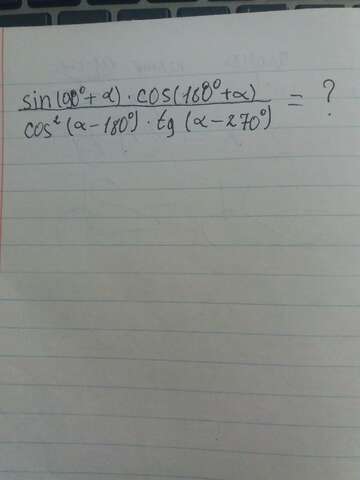 sin(90°+α)·cos(180°+α)
cos²(α-180°)·tg(α-270°) = ?